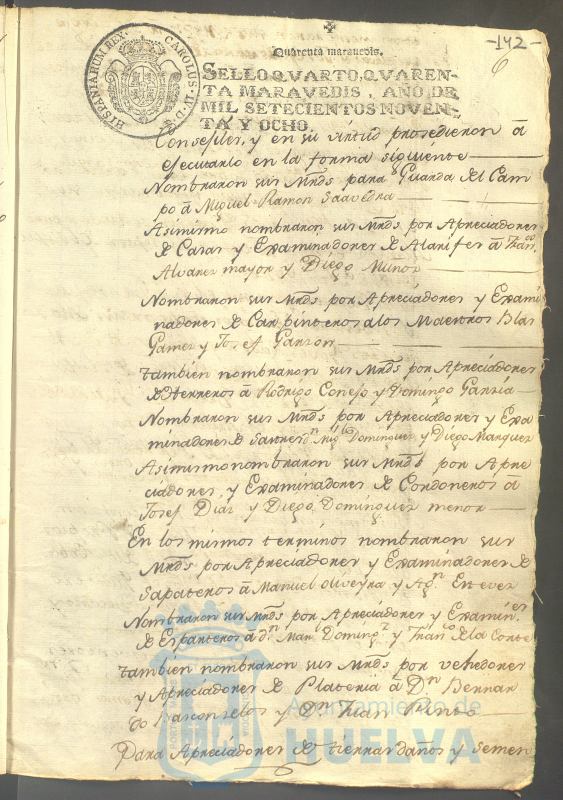 -142-
6
Quarenta maravedis.
HISPANIARUM REX. CAROLUS IV D.G.
SELLO QVARTO, QVAREN-
TA MARAVEDIS, AÑO DE
MIL SETECIENTOS NOVEN-
TA Y OCHO.
y en su virtud prosedieron â
ejecutarlo en la forma siguiente
Nombraron sus Mrds para Guarda del Cam
po â Miguel Ramon Saavedra
Asimismo nombraron sus Mrds por Apreciadores
de Casas y Examinadores de Alarifes â Fran.co
Alvarez mayor y Diego Muños
Nombraron sus Mrds por Apreciadores y Exami
nadores de Carpinteros a los Maestros Blas
Gamez y Josef Garzon
tambien nombraron sus Mrds por Apreciadores
de Herreros â Rodrigo Conejo y Domingo Garsia
Nombraron sus Mrds por Apreciadores y Exa
minadores de Sastres dn Migl Dominguez y Diego Marquez
Asimismo nombraron sus Mrds por Apre
ciadores, y Examinadores de Cordoneros â
Josef Diaz y Diego Dominguez menor
En los mismos terminos nombraron sus
Mrds por Apreciadores y Examinadores de
Sapateros â Manuel Oliveyra y Agn Estevez
Nombraron sus Mrds por Apreciadores y Examin.es
de Esparteros â dn Manl Doming.z y Fran.co de la Corte
tambien nombraron sus Mrds por vehedores
y Apreciadores de Plateria â Dn Bernar
do Basconselos y Dn Juan Pinto
Para Apreciadores de tierras daños y semen
Ayuntamiento de
HUELVA